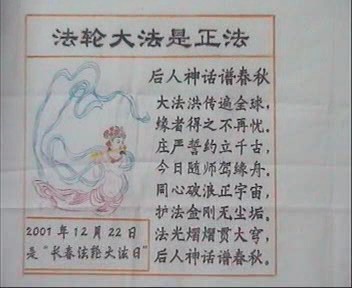 法轮大法是正法
后人神话谱春秋
大法洪传遍全球，
缘者得之不再忧。
庄严誓约立千古，
今日随师驾缘舟。
同心破浪正宇宙，
护法金刚无尘垢。
法光熠熠贯大穹，
后人神话谱春秋。
2001年12月22日
是“长春法轮大法日”